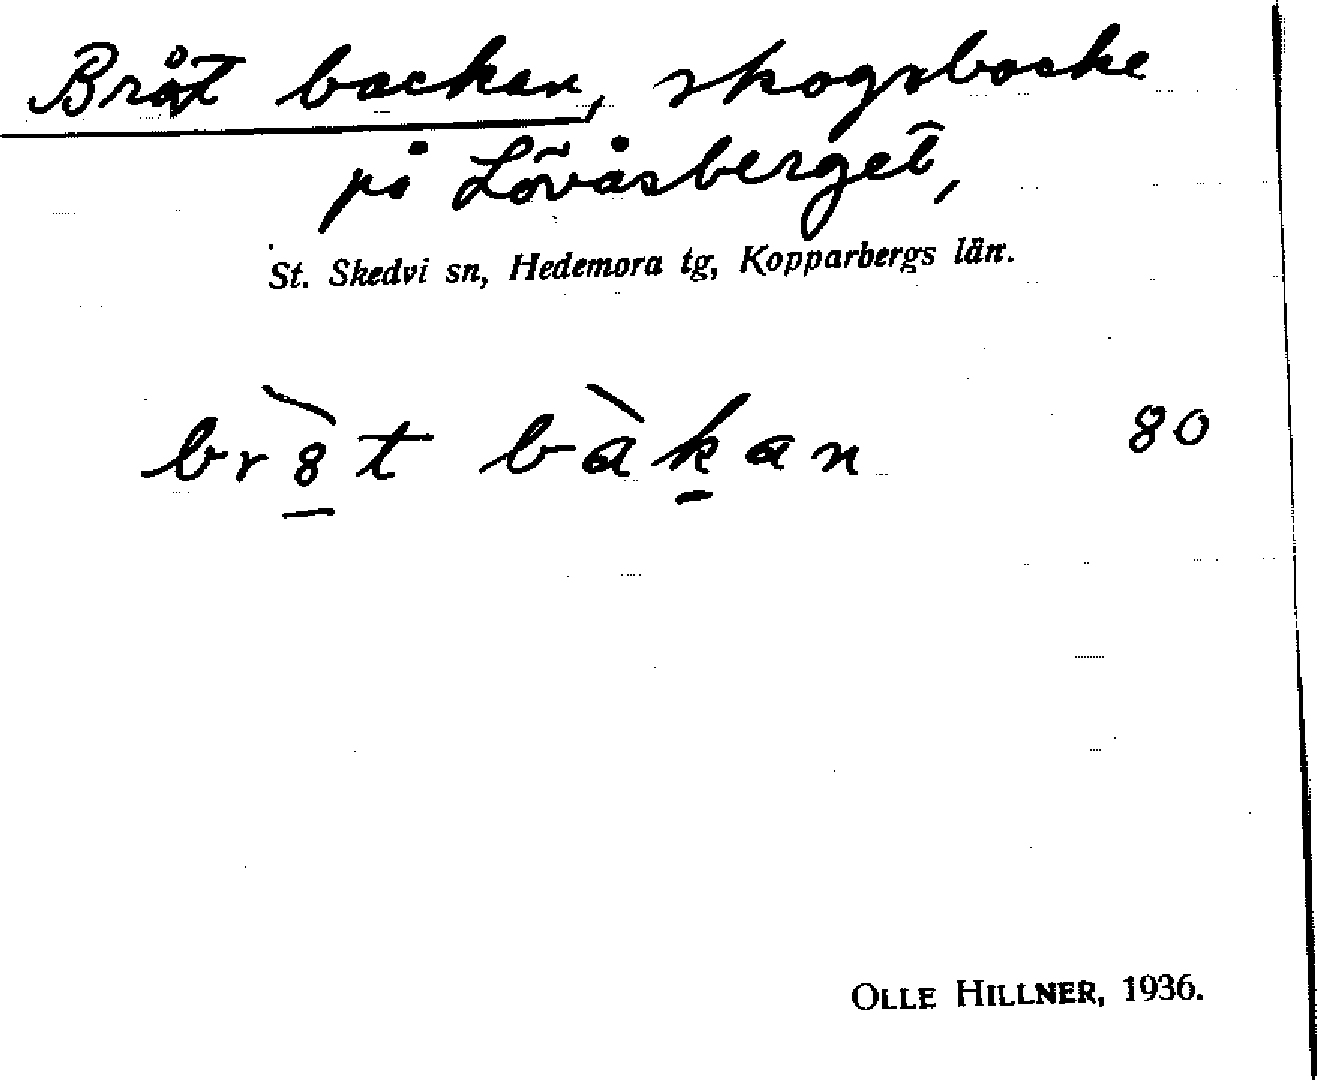 Bråt backen, skogsbacke
på Lövåsberget,
St. Skedvi sn, Hedemora tg, Kopparbergs län.
br8̱̀t bàḵan 80
OLLE HILLNER, 1936.